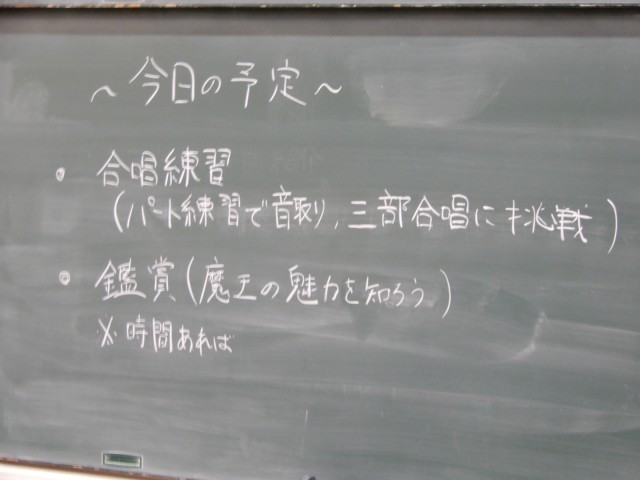 ～今日の予定～
・合唱練習
（パート練習で音取り，三部合唱に挑戦）
・鑑賞（魔王の魅力を知ろう）
※時間あれば